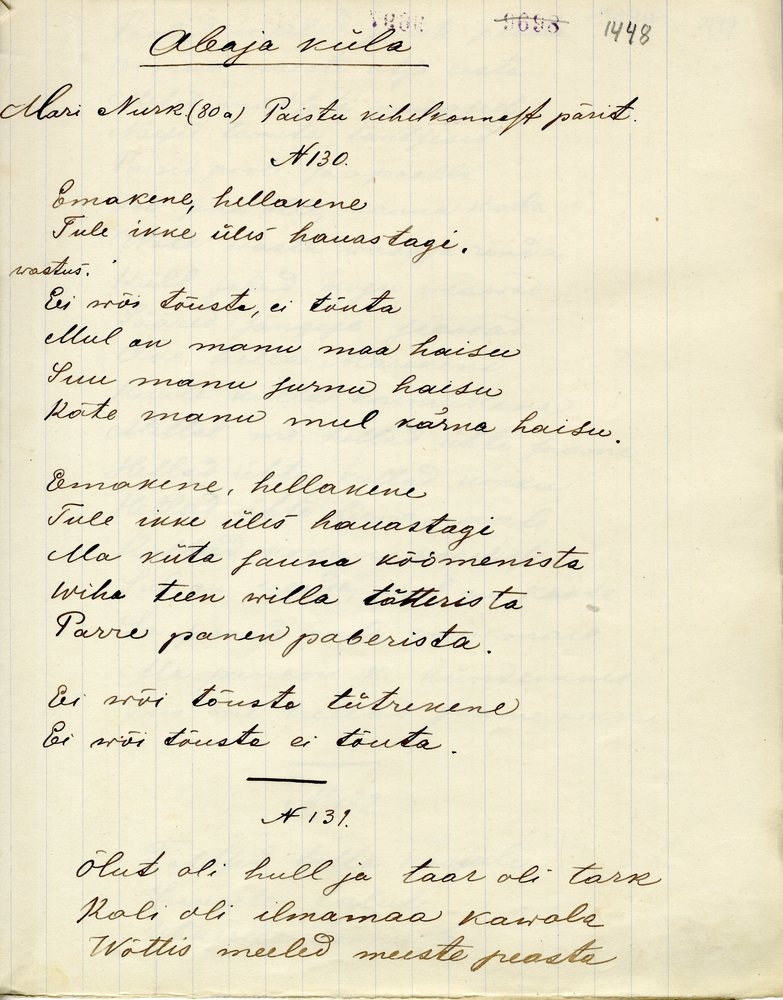 9698 1448
Abaja küla
Mari Nurk (80 a) Paistu kihelkonnast pärit.
N 130.
Emakene, hellakene
Tule ikke ülis hauastagi.
wastus:
Ei wõi tõusta, ei tõuta
Mul on manu maa haisu
Suu manu surnu haisu
Käte manu mul kärna haisu.
Emakene, hellakene
Tule ikke ülis hauastagi
Ma küta sauna köömenista
Wiha teen willa tätterista
Parre panen paberista.
Ei wõi tõusta tütrekene
Ei wõi tõusta ei tõuta.
N 131.
Õlut oli hull ja taar oli tark
Kali oli ilmamaa kawala
Wõttis meeled meeste peasta